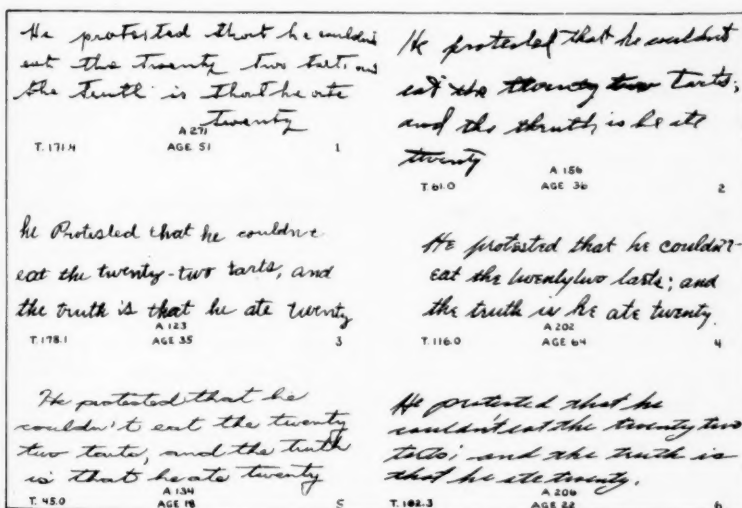 He protested that he couldn't
eat the twenty two tarts and
the truth is that he ate
twenty
A 271
T. 171.4 AGE 51 1
He protested that he couldn't
eat the twenty two tarts;
and the thruth is he ate
twenty
A 156
T. 61.0 AGE 36 2
he Protested that he couldn't
eat the twenty-two tarts, and
the truth is that he ate twenty
A 123
T. 178.1 AGE 35 3
He protested that he couldn't
eat the twentytwo tarts; and
the truth is he ate twenty.
A 202
T. 116.0 AGE 64 4
He protested that he
couldn't eat the twenty
two tarts, and the truth
is that he ate twenty
A 134
T. 45.0 AGE 18 5
He protested that he
couldn't eat the twenty two
tarts; and the truth is
that he ate twenty.
A 206
T. 182.3 AGE 22 6